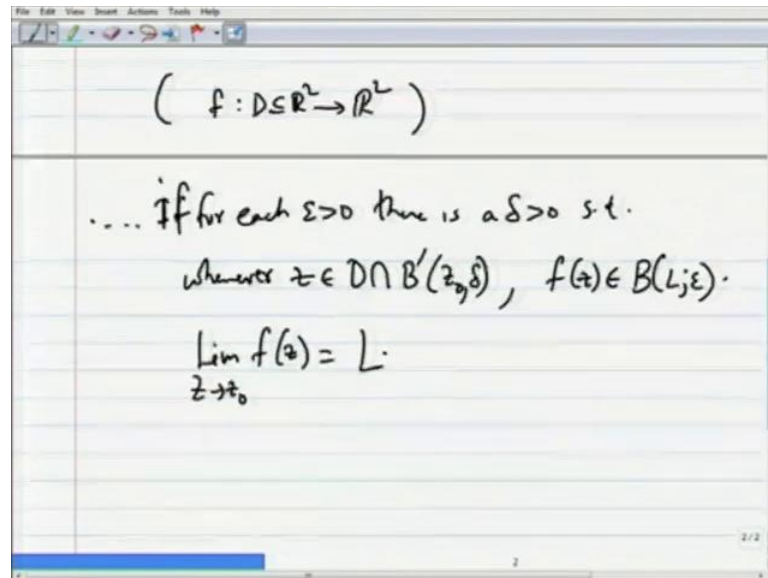 File Edit View Insert Actions Tools Help
( f : D ⊆ ℝ² → ℝ² )
.... If for each ε>0 there is a δ>0 s.t.
whenever z ∈ D ∩ B'(z₀, δ), f(z) ∈ B(L; ε).
Lim f(z) = L.
z→z₀
2/2
2